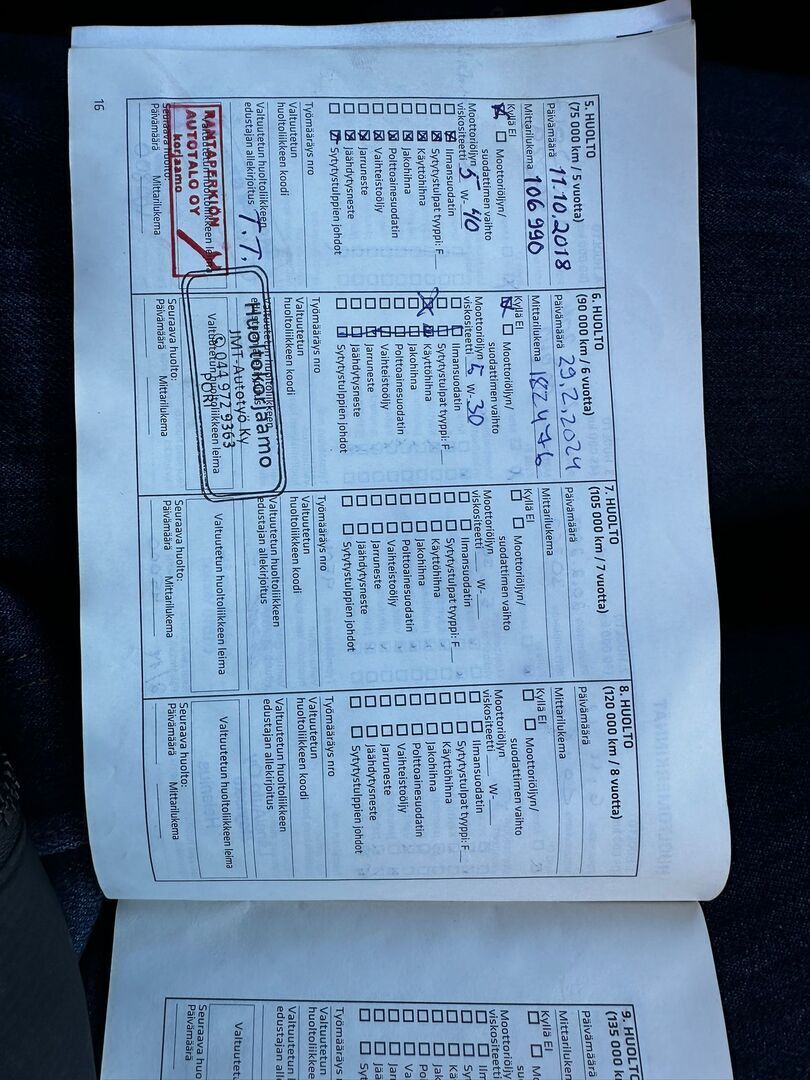 5. HUOLTO
(75 000 km / 5 vuotta)
Päivämäärä 11.10.2018
Mittarilukema 106 990
Kyllä Ei
Moottoriöljyn/
suodattimen vaihto
Moottoriöljyn
viskositeetti 5 W- 40
Ilmansuodatin
Sytytystulpat tyyppi: F
Käyttöhihna
Jakohihna
Polttoainesuodatin
Vaihteistoöljy
Jarruneste
Jäähdytysneste
Sytytystulppien johdot
Työmääräys nro
Valtuutetun
huoltoliikkeen koodi
Valtuutetun huoltoliikkeen
edustajan allekirjoitus T.T.
Valtuutetun huoltoliikkeen leima
RANTAPERKIÖN
AUTOTALO OY
korjaamo
Seuraava huolto:
Päivämäärä Mittarilukema
6. HUOLTO
(90 000 km / 6 vuotta)
Päivämäärä 29.2.2024
Mittarilukema 182476
Kyllä Ei
Moottoriöljyn/
suodattimen vaihto
Moottoriöljyn
viskositeetti 5 W- 30
Ilmansuodatin
Sytytystulpat tyyppi: F
Käyttöhihna
Jakohihna
Polttoainesuodatin
Vaihteistoöljy
Jarruneste
Jäähdytysneste
Sytytystulppien johdot
Työmääräys nro
Valtuutetun
huoltoliikkeen koodi
Valtuutetun huoltoliikkeen
edustajan allekirjoitus
Huoltokorjaamo
JMT-Autotyö Ky
✆ 044 972 9363
PORI
Valtuutetun huoltoliikkeen leima
Seuraava huolto:
Päivämäärä Mittarilukema
7. HUOLTO
(105 000 km / 7 vuotta)
Päivämäärä
Mittarilukema
Kyllä Ei
Moottoriöljyn/
suodattimen vaihto
Moottoriöljyn
viskositeetti W-
Ilmansuodatin
Sytytystulpat tyyppi: F
Käyttöhihna
Jakohihna
Polttoainesuodatin
Vaihteistoöljy
Jarruneste
Jäähdytysneste
Sytytystulppien johdot
Työmääräys nro
Valtuutetun
huoltoliikkeen koodi
Valtuutetun huoltoliikkeen
edustajan allekirjoitus
Valtuutetun huoltoliikkeen leima
Seuraava huolto:
Päivämäärä Mittarilukema
8. HUOLTO
(120 000 km / 8 vuotta)
Päivämäärä
Mittarilukema
Kyllä Ei
Moottoriöljyn/
suodattimen vaihto
Moottoriöljyn
viskositeetti W-
Ilmansuodatin
Sytytystulpat tyyppi: F
Käyttöhihna
Jakohihna
Polttoainesuodatin
Vaihteistoöljy
Jarruneste
Jäähdytysneste
Sytytystulppien johdot
Työmääräys nro
Valtuutetun
huoltoliikkeen koodi
Valtuutetun huoltoliikkeen
edustajan allekirjoitus
Valtuutetun huoltoliikkeen leima
Seuraava huolto:
Päivämäärä Mittarilukema
16
9. HUOLTO
(135 000 k
Päivämäärä
Mittarilukem
Kyllä Ei
Mo
su
Moottoriölj
viskositeetti
Ilm
Sy
Kä
Ja
Po
Va
Ja
Jä
Sy
Työmääräys n
Valtuutetun
huoltoliikkee
Valtuutetun h
edustajan alle
Valtuutet
Seuraava huo
Päivämäärä